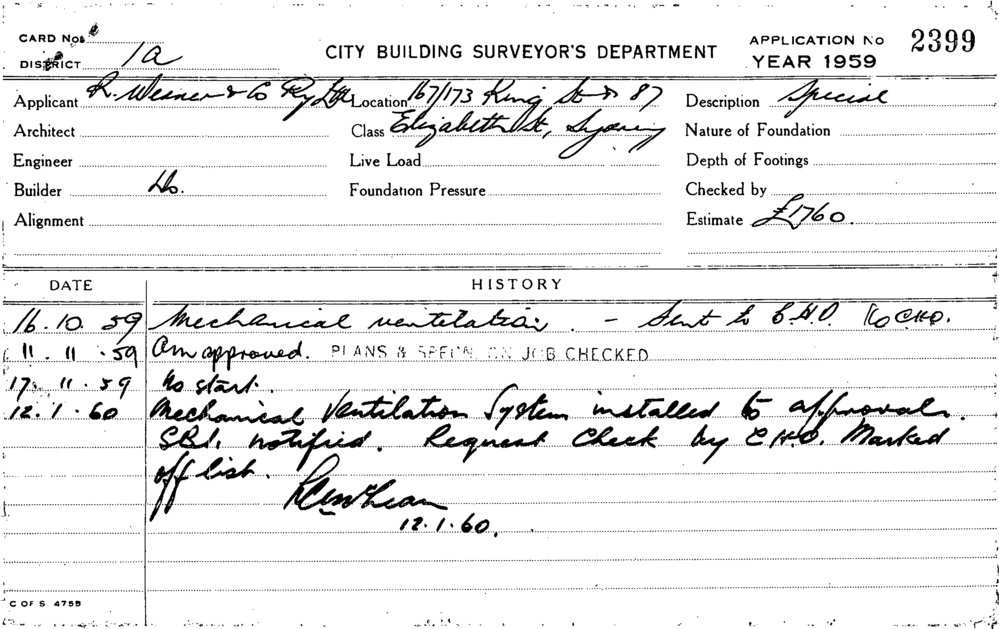 CARD Nos
DISTRICT 1a
CITY BUILDING SURVEYOR'S DEPARTMENT
APPLICATION No 2399
YEAR 1959
Applicant R. Wesner & Co Pty Ltd Location 167/173 King St & 87 Description Special
Architect Class Elizabeth St, Sydney Nature of Foundation
Engineer Live Load Depth of Footings
Builder Do. Foundation Pressure Checked by
Alignment Estimate £1760.
DATE HISTORY
16.10.59 Mechanical ventilation. - Sent to C.H.O. C.H.O.
11.11.59 approved. PLANS & SPECN. ON JOB CHECKED
17.11.59 No start.
12.1.60 Mechanical Ventilation System installed to approval.
SBI. notified. Request Check by C.H.O. Marked
off list.
12.1.60.
C OF S 4755